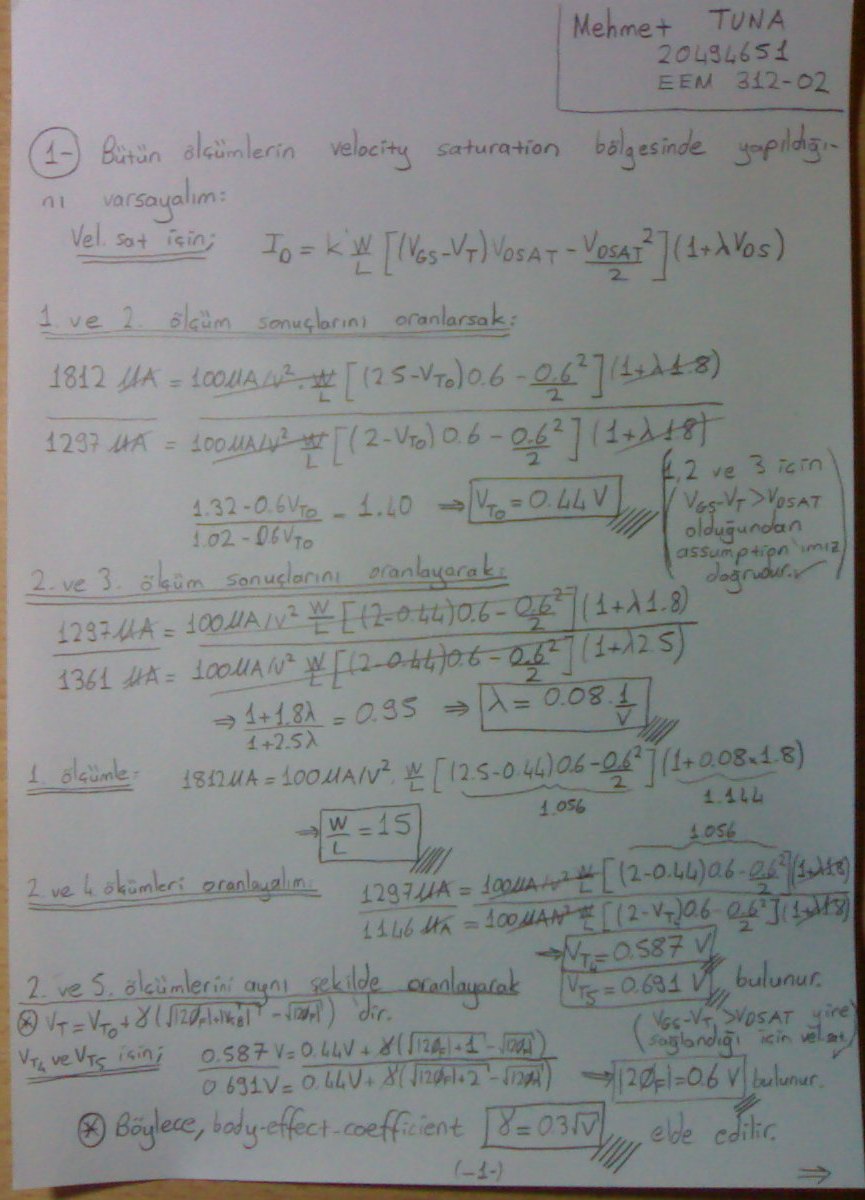 Mehmet TUNA
20494651
EEM 312-02
1- Bütün ölçümlerin velocity saturation bölgesinde yapıldığı-
nı varsayalım:
Vel. sat için; I_D = k' W/L [(V_GS-V_T)V_DSAT - V_DSAT²/2](1+λV_DS)
1. ve 2. ölçüm sonuçlarını oranlarsak:
1812 µA = 100µA/V² . W/L [(2.5-V_T0)0.6 - 0.6²/2](1+λ1.8)
1297 µA = 100µA/V² W/L [(2-V_T0)0.6 - 0.6²/2](1+λ1.8)
1.32-0.6V_T0 / 1.02-0.6V_T0 = 1.40 ⇒ V_T0 = 0.44V
(1,2 ve 3 için
V_GS-V_T > V_DSAT
olduğundan
assumption'ımız
doğrudur. ✓)
2. ve 3. ölçüm sonuçlarını oranlayarak:
1297µA = 100µA/V² W/L [(2-0.44)0.6 - 0.6²/2](1+λ1.8)
1361 µA = 100µA/V² W/L [(2-0.44)0.6 - 0.6²/2](1+λ2.5)
⇒ 1+1.8λ / 1+2.5λ = 0.95 ⇒ λ = 0.08 . 1/V
1. ölçümle: 1812µA = 100µA/V². W/L [(2.5-0.44)0.6 - 0.6²/2](1+0.08×1.8)
1.056 1.144
⇒ W/L = 15
1.056
2. ve 4 ölçümleri oranlayalım: 1297µA = 100µA/V² W/L [(2-0.44)0.6 - 0.6²/2](1+λ1.8)
1146 µA = 100µA/V² W/L [(2-V_T4)0.6 - 0.6²/2](1+λ1.8)
⇒ V_T4 = 0.587 V
2. ve 5. ölçümlerini aynı şekilde oranlayarak V_T5 = 0.691 V bulunur.
* V_T = V_T0 + γ(√|2ϕ_F|+|V_SB| - √|2ϕ_F|) 'dir.
(V_GS-V_T > V_DSAT yine
sağlandığı için vel.sat ✓)
V_T4 ve V_T5 için; 0.587 V = 0.44V + γ(√|2ϕ_F|+1 - √|2ϕ_F|)
0.691V = 0.44V + γ(√|2ϕ_F|+2 - √|2ϕ_F|) ⇒ |2ϕ_F| = 0.6 V bulunur.
* Böylece, body-effect-coefficient γ = 0.3√V elde edilir.
(-1-) ⇒